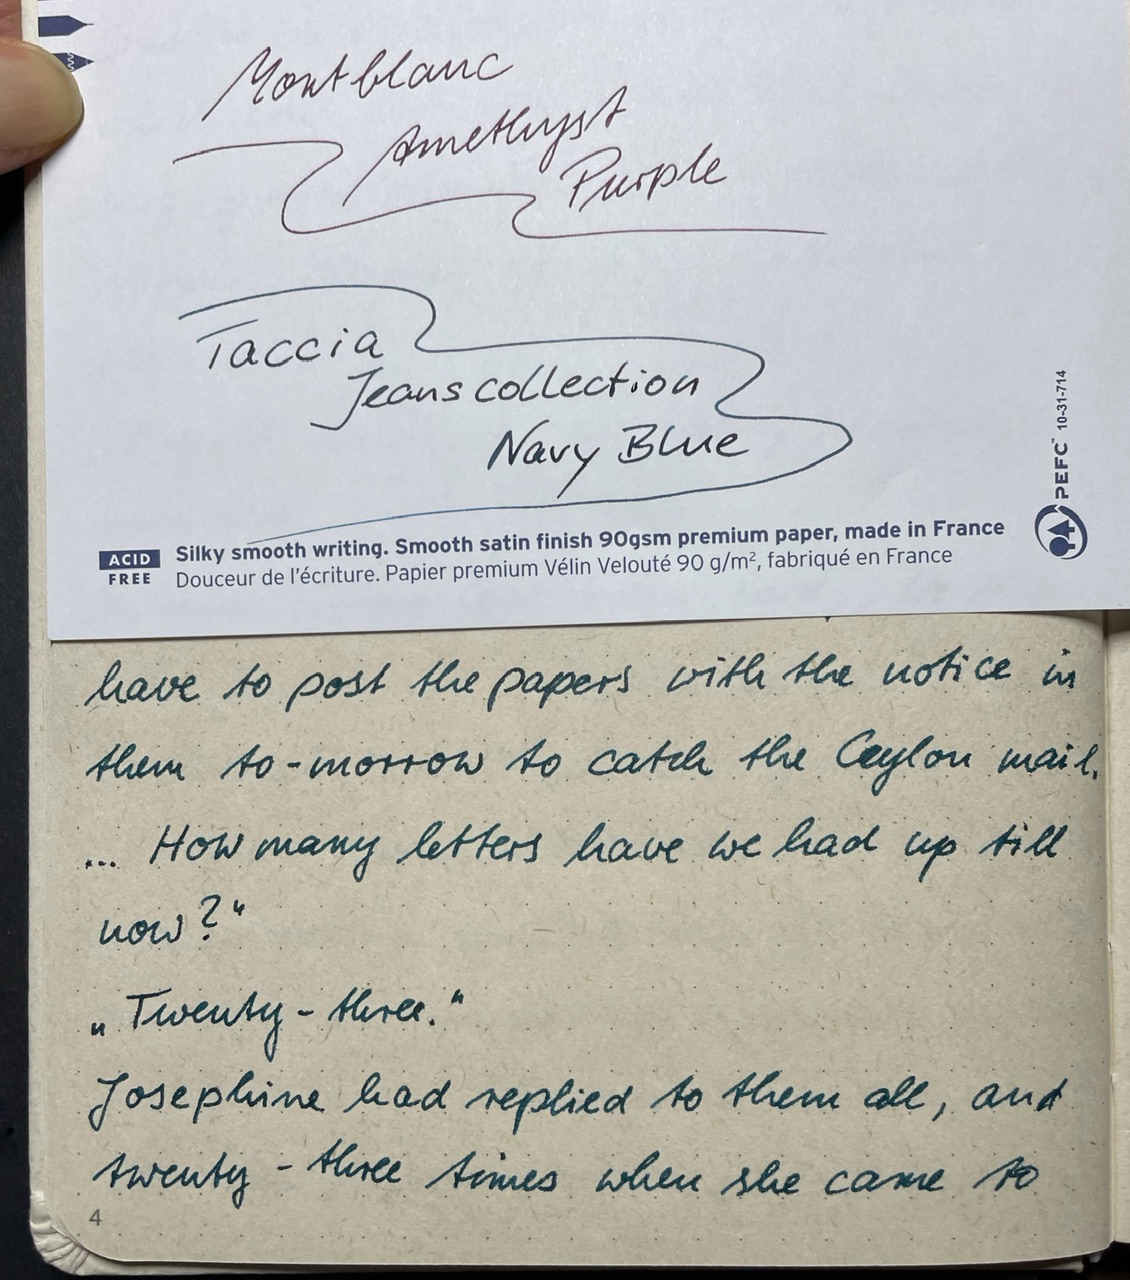 Montblanc
Amethyst
Purple
Taccia
Jeans collection
Navy Blue
ACID
FREE
Silky smooth writing. Smooth satin finish 90gsm premium paper, made in France
Douceur de l'écriture. Papier premium Vélin Velouté 90 g/m², fabriqué en France
PEFC™ 10-31-714
have to post the papers with the notice in
them to-morrow to catch the Ceylon mail.
... How many letters have we had up till
now?“
„Twenty-three.“
Josephine had replied to them all, and
twenty-three times when she came to
4